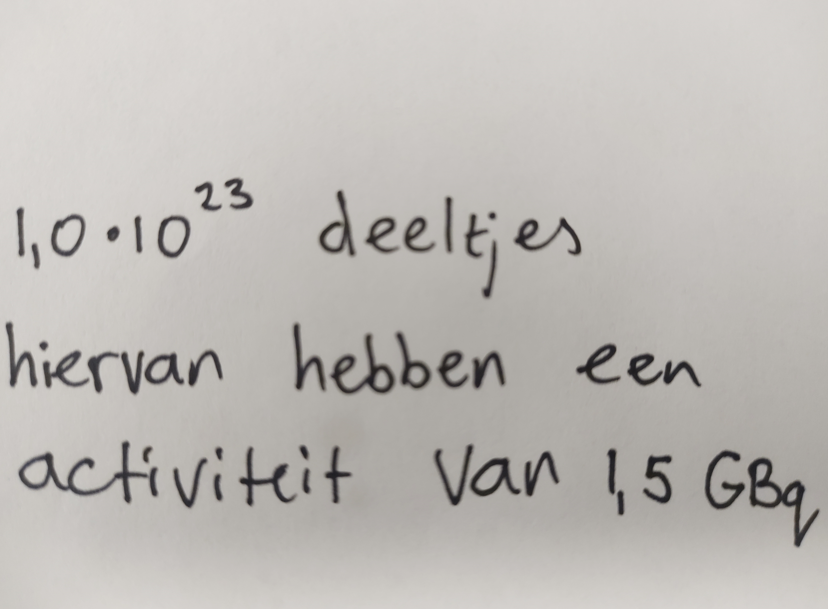 1,0 · 10²³ deeltjes
hiervan hebben een
activiteit van 1,5 GBq